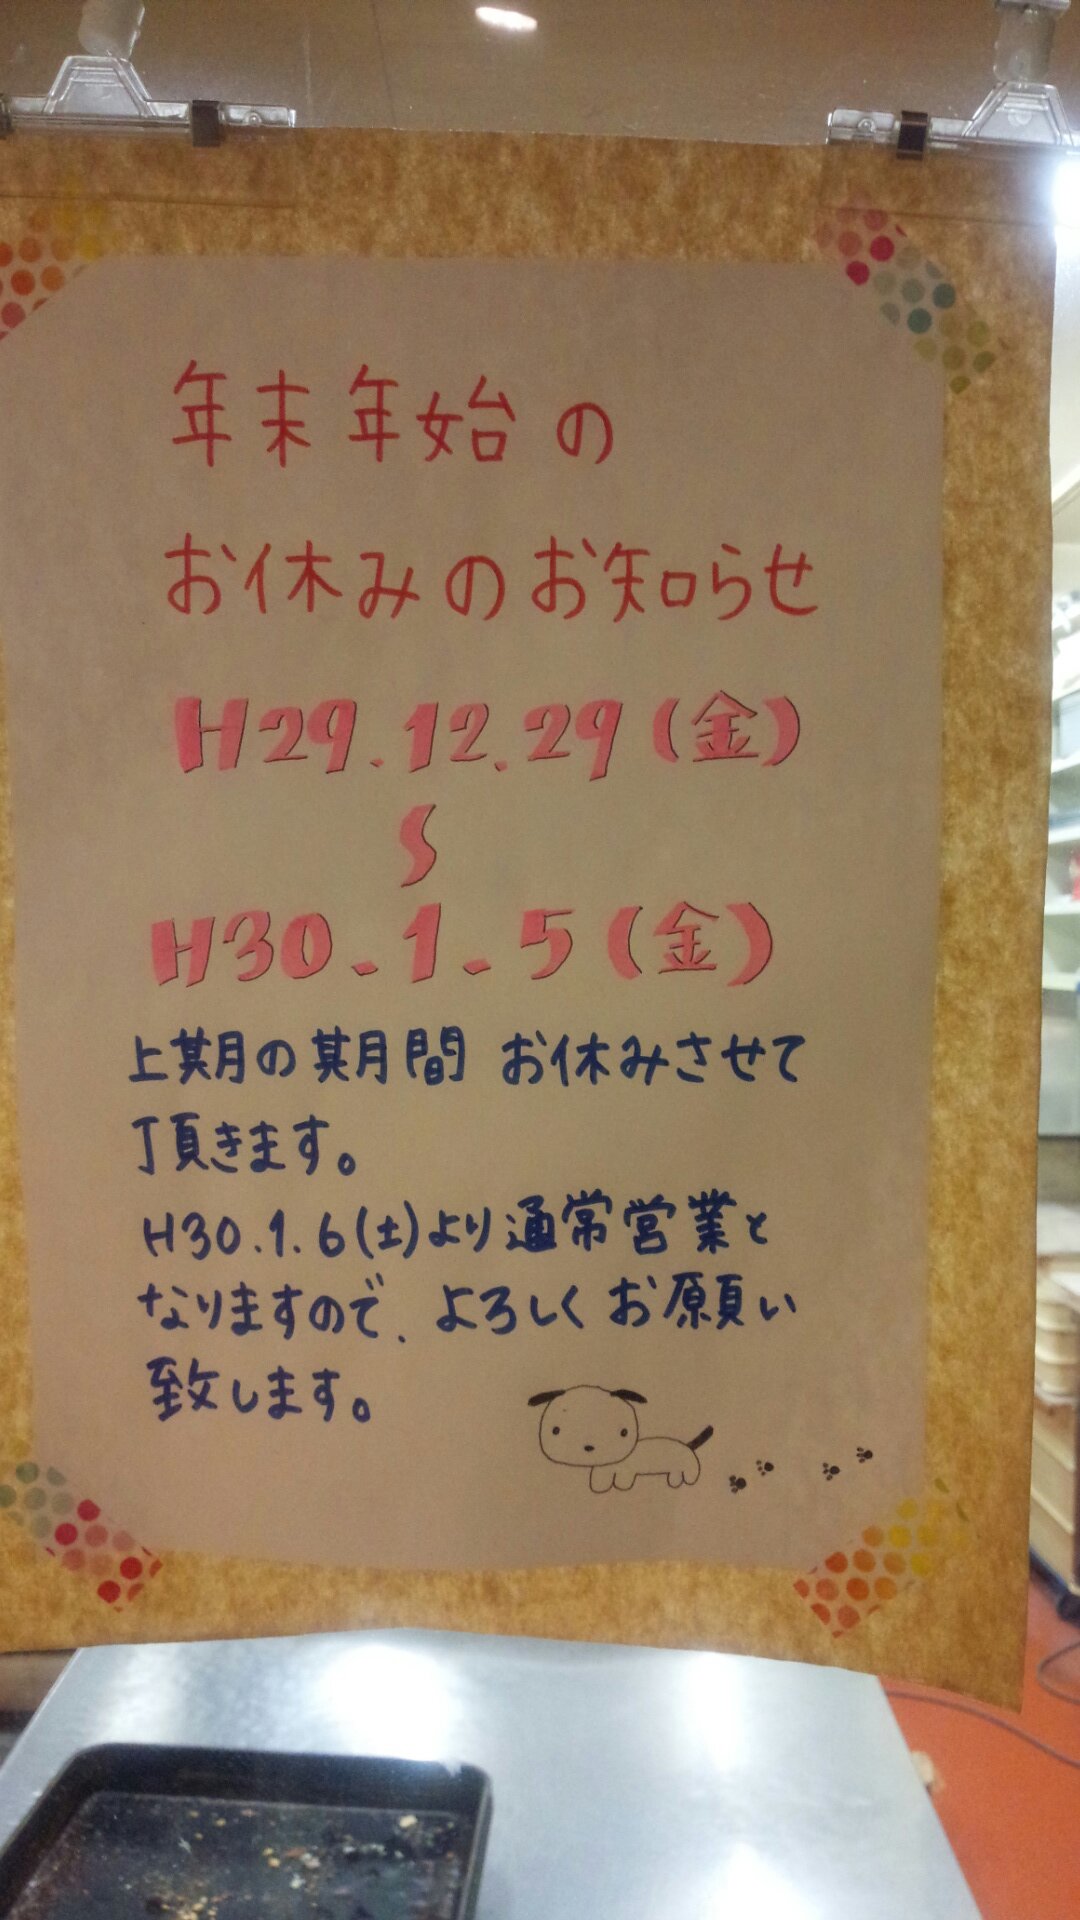 年末年始の
お休みのお知らせ
H29.12.29(金)
〜
H30.1.5(金)
上期の期間 お休みさせて
頂きます。
H30.1.6(土)より通常営業と
なりますので、よろしくお願い
致します。